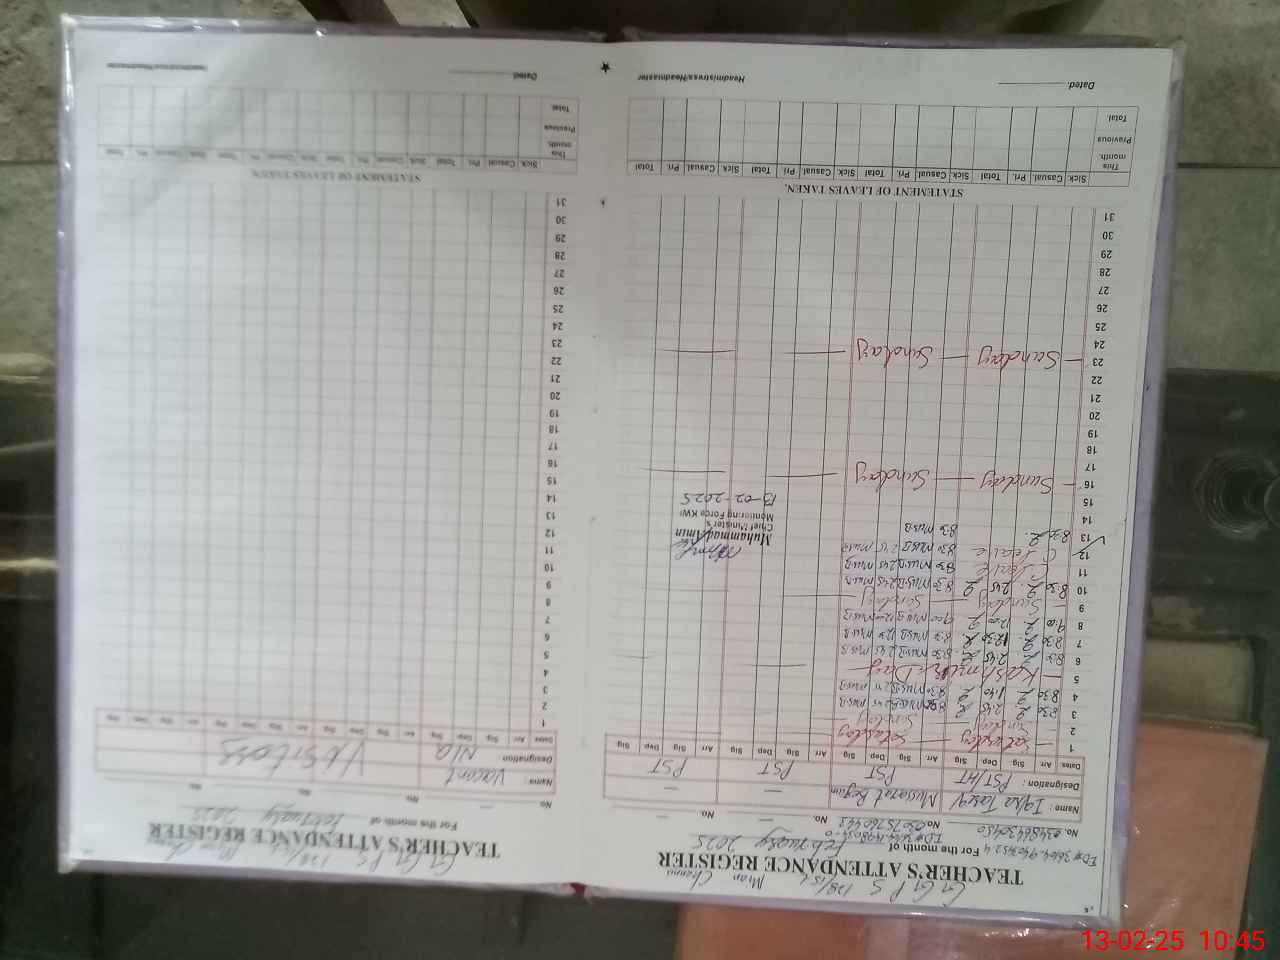 G G P S 128/15-L Mian Channu
TEACHER'S ATTENDANCE REGISTER
For the month of February 2025
No. 03486430450
No.
No.
Name: Iqra Tareq Mussarat Begum — —
Designation: PST/HT PST PST PST
Dates Arr Sig Dep Sig Arr Sig Dep Sig Arr Sig Dep Sig Arr Sig Dep Sig
1 — Saturday — Saturday
2 Sunday Sunday
3 8:30 2.45 8:30 Mus.B 2.45 Mus.B
4 8:30 1.40 8:30 Mus.B Mus.B
5 — Kashmir Day
6 8:30 2.45 8:30 Mus.B 2.45 Mus.B
7 8:30 12:30 8:30 Mus.B 12:30 Mus.B
8 9:00 12:00 9:00 Mus.B 12:00 Mus.B
9 — Sunday — Sunday
10 8:30 2.45 8:30 Mus.B 2.45 Mus.B
11 C Leave 8:30 Mus.B 2.45 Mus.B
12 C Leave 8:30 Mus.B 2.45 Mus.B
13 8:30 8:30 Mus.B
Muhammad Amin
Chief Minister's
Monitoring Force KWL
13-02-2025
14
15
16 — Sunday — Sunday —
17
18
19
20
21
22
23 — Sunday — Sunday —
24
25
26
27
28
29
30
31
STATEMENT OF LEAVES TAKEN.
Sick Casual Pri. Total Sick Casual Pri. Total Sick Casual Pri. Total Sick Casual Pri. Total
This month.
Previous
Total.
Dated. Headmistress/Headmaster
G G P S 128/15-L Mian Channu
TEACHER'S ATTENDANCE REGISTER
For the month of February 2025
No.
No.
No.
Name: Vacant
Designation N/A
Visitors
Dates Arr Sig Dep Sig Arr Sig Dep Sig Arr Sig Dep Sig Arr Sig Dep Sig
1
2
3
4
5
6
7
8
9
10
11
12
13
14
15
16
17
18
19
20
21
22
23
24
25
26
27
28
29
30
31
STATEMENT OF LEAVES TAKEN.
Sick Casual Pri. Total Sick Casual Pri. Total Sick Casual Pri. Total Sick Casual Pri. Total
This month.
Previous
Total.
Dated. Headmistress/Headmaster
13-02-25 10:45